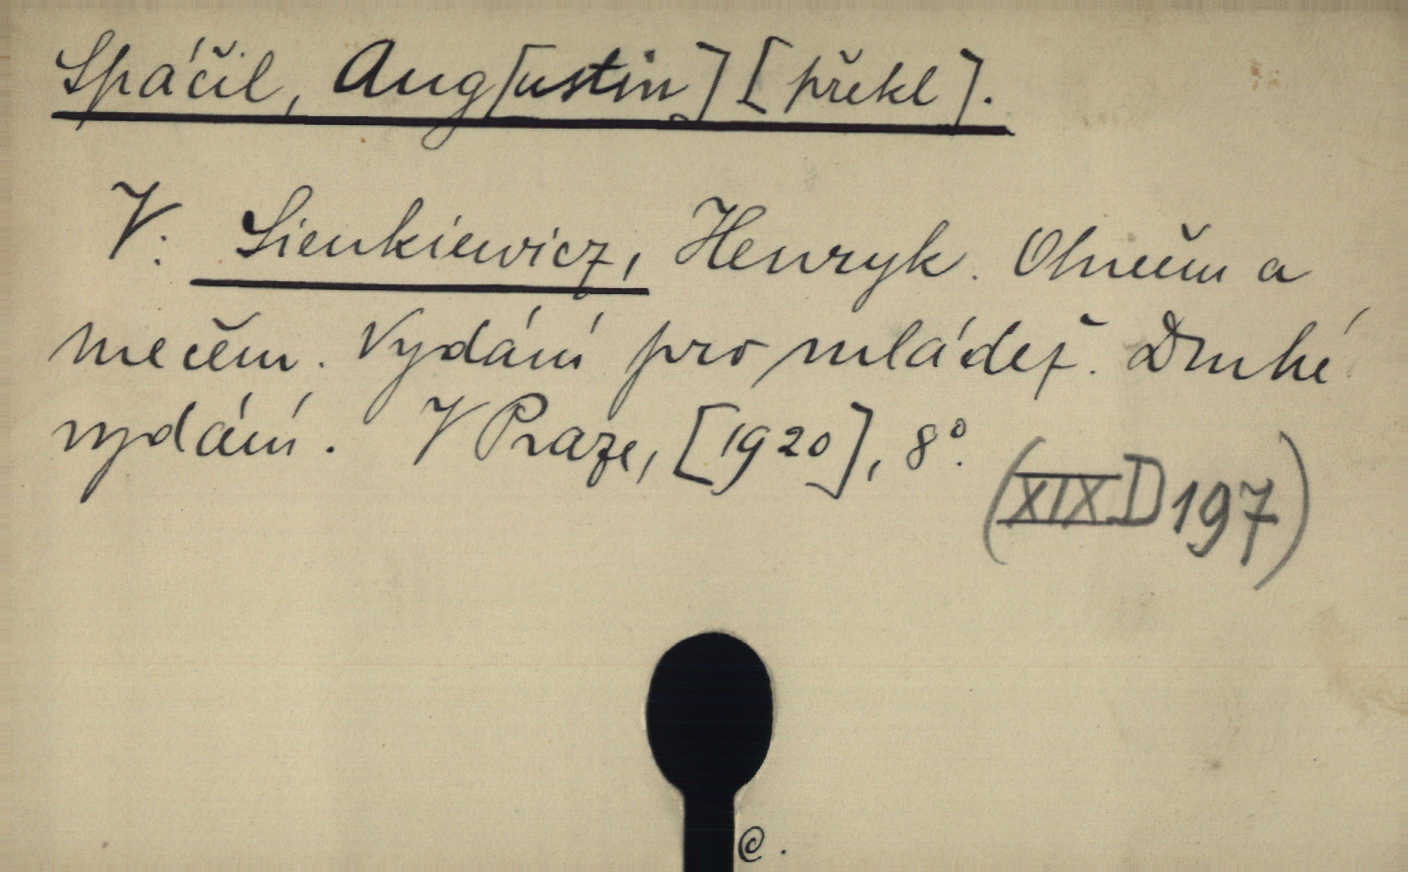 Spáčil, Aug[ustin] [překl].
V. Sienkiewicz, Henryk. Ohněm a
mečem. Vydání pro mládež. Druhé
vydání. V Praze, [1920], 8°.
(XIX D 197)
@.